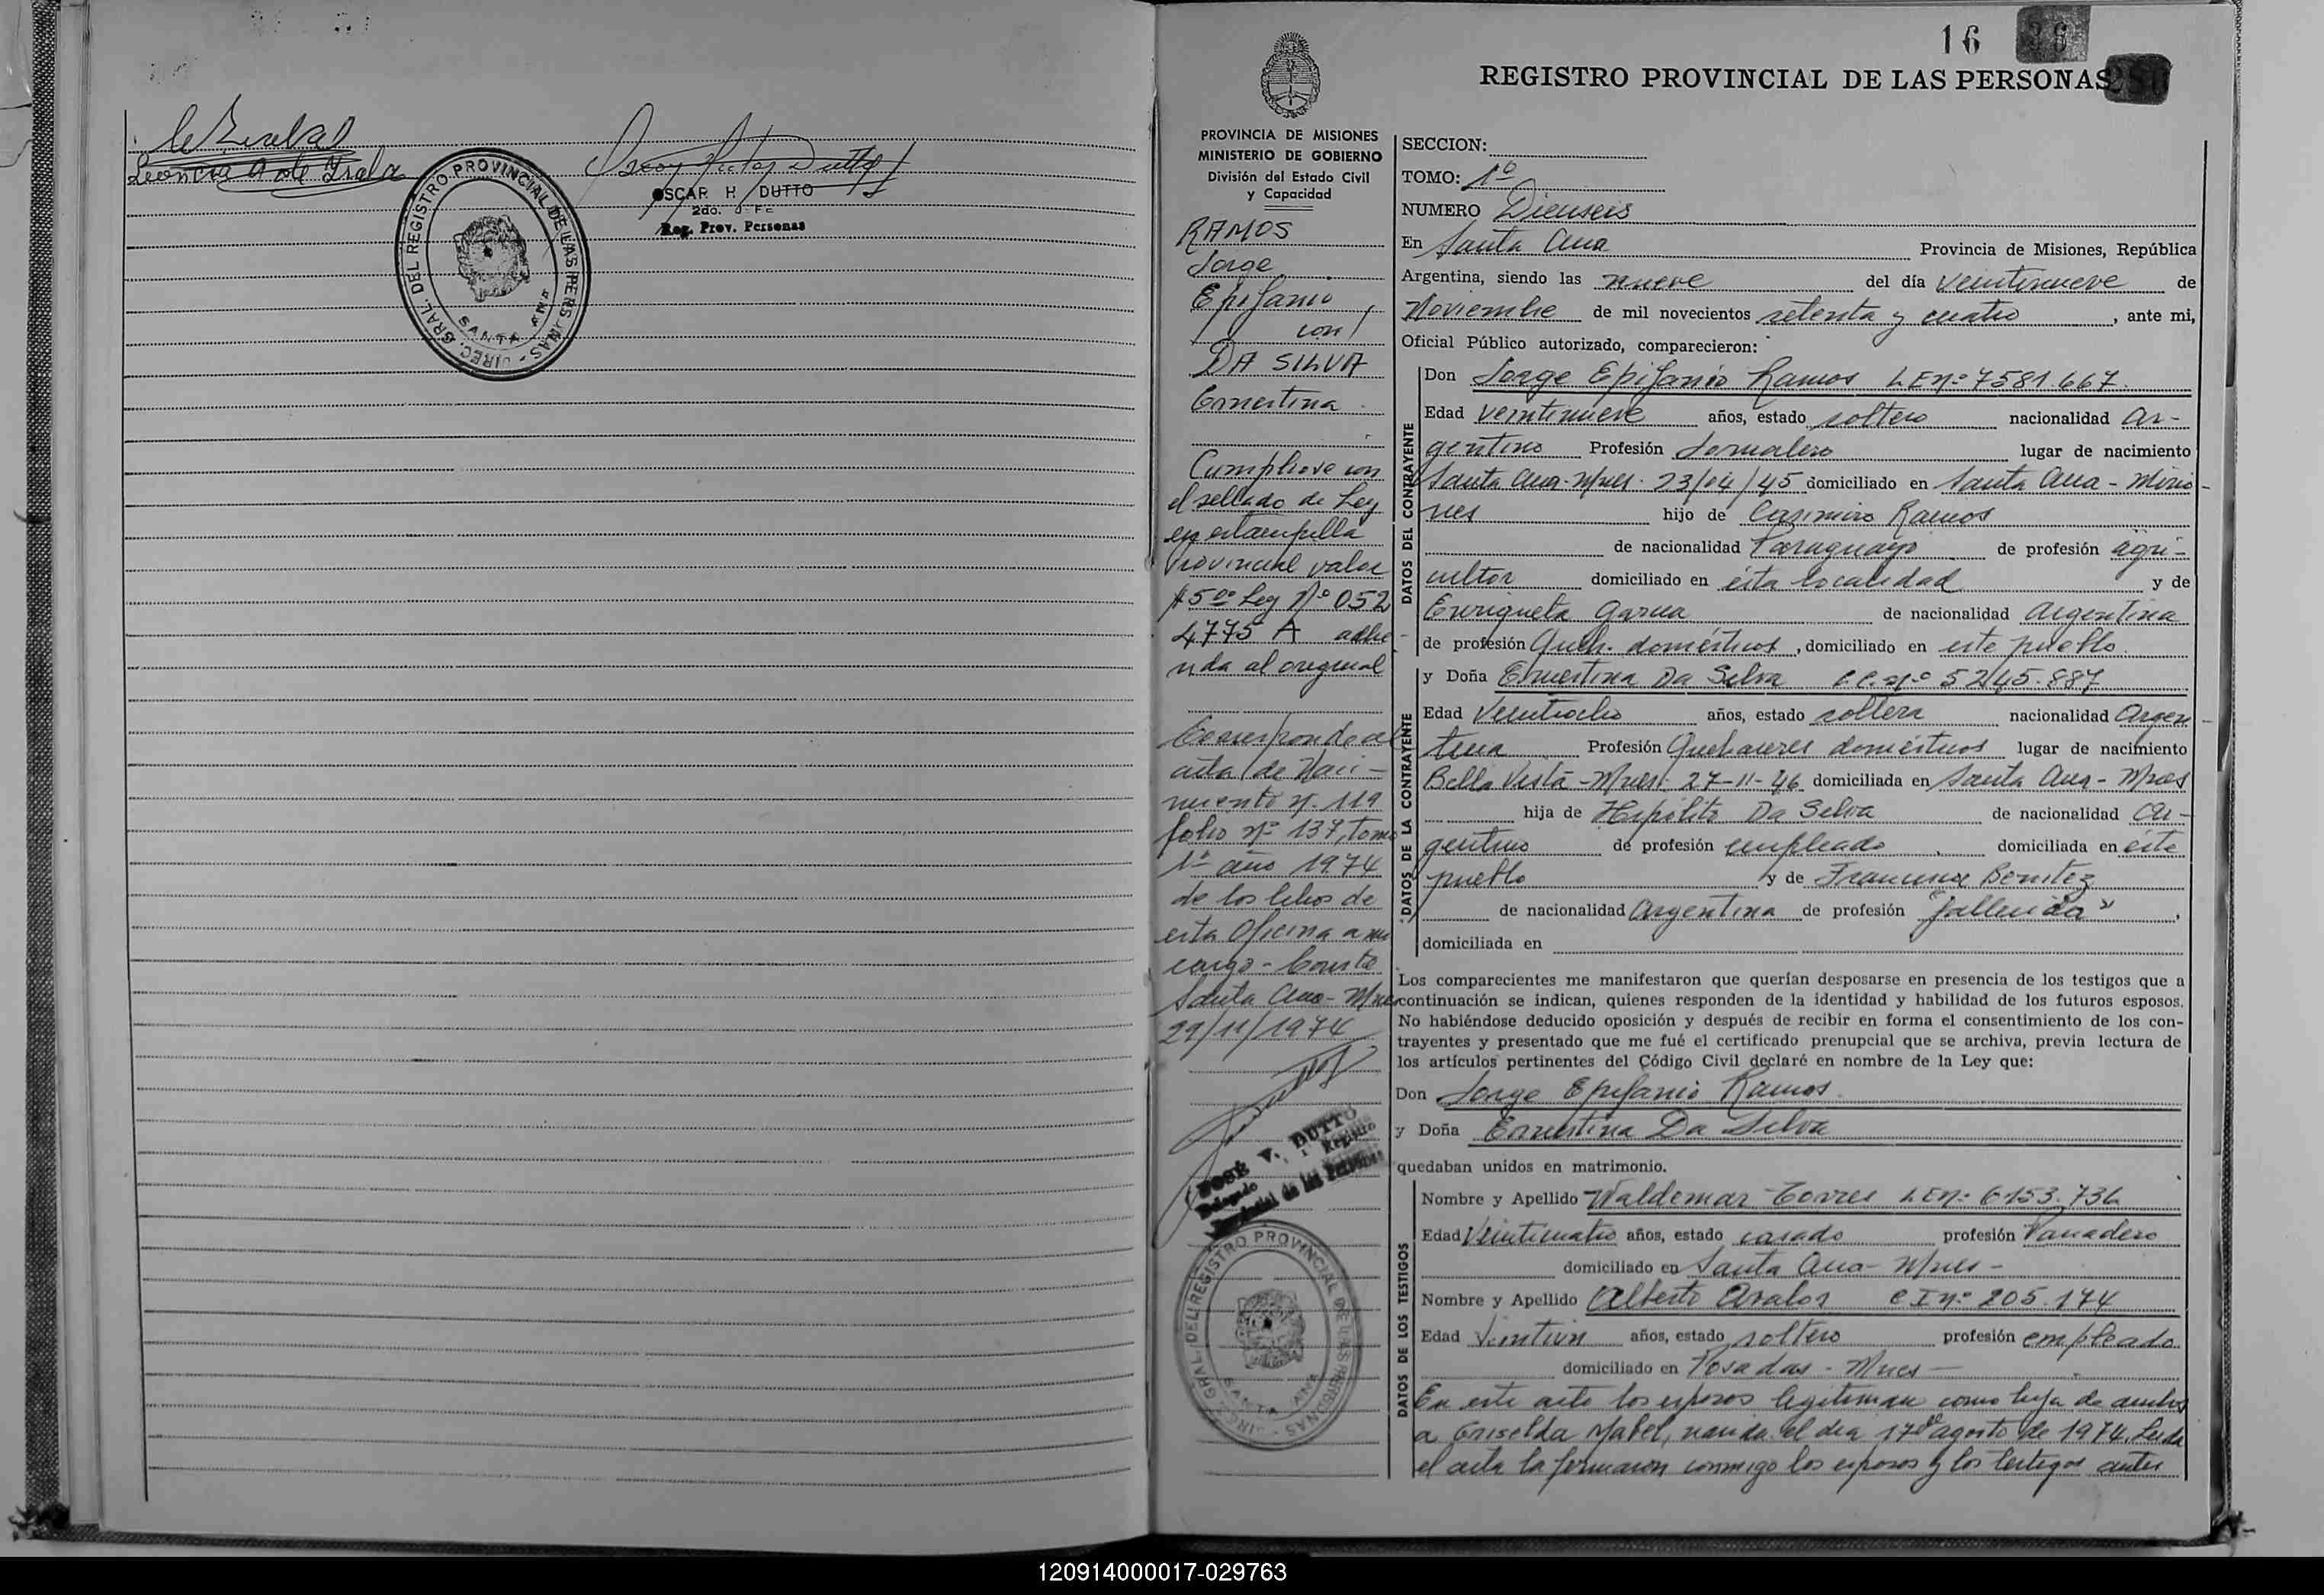 Leoncia A de Irala
OSCAR H DUTTO
2do. Jefe
Reg. Prov. Personas
DIREC. GRAL. DEL REGISTRO PROVINCIAL DE LAS PERSONAS -
SANTA ANA
16
REGISTRO PROVINCIAL DE LAS PERSONAS
PROVINCIA DE MISIONES
MINISTERIO DE GOBIERNO
División del Estado Civil
y Capacidad
RAMOS
Jorge
Epifanio
con
DA SILVA
Ernestina
Cumplióse con
el sellado de Ley
en estampilla
Provincial valor
$5 00 Ley Nº 052
4775 A adhe-
rida al original
Corresponde al
acta de Naci-
miento Nº 119
folio Nº 137, tomo
1º año 1974
de los libros de
esta Oficina a mi
cargo - Conste
Santa Ana - Mnes
29/11/1974
JOSÉ V. DUTTO
Delegado Registro
Provincial de las Personas
DIREC. GRAL. DEL REGISTRO PROVINCIAL DE LAS PERSONAS -
SANTA ANA
SECCION:
TOMO: 1º
NUMERO Dieciseis
En Santa Ana Provincia de Misiones, República
Argentina, siendo las nueve del día veintinueve de
Noviembre de mil novecientos setenta y cuatro, ante mi,
Oficial Público autorizado, comparecieron:
DATOS DEL CONTRAYENTE
Don Jorge Epifanio Ramos L E nº 7581.667.
Edad veintinueve años, estado soltero nacionalidad ar-
gentino Profesión Jornalero lugar de nacimiento
Santa Ana-Mnes. 23/04/45 domiciliado en Santa Ana - Misio-
nes hijo de Casimiro Ramos
de nacionalidad Paraguayo de profesión agri-
cultor domiciliado en ésta localidad y de
Enriqueta Garcia de nacionalidad argentina
de profesión Queh. domésticos, domiciliado en este pueblo.
DATOS DE LA CONTRAYENTE
y Doña Ernestina Da Silva C.C. nº 5245.887
Edad Veintiocho años, estado soltera nacionalidad Argen-
tina Profesión Quehaceres domésticos lugar de nacimiento
Bella Vista-Mnes. 27-11-46 domiciliada en Santa Ana - Mnes
hija de Hipólito Da Silva de nacionalidad Ar-
gentino de profesión empleado domiciliada en éste
pueblo y de Francisca Benitez
de nacionalidad Argentina de profesión "fallecida",
domiciliada en
Los comparecientes me manifestaron que querían desposarse en presencia de los testigos que a
continuación se indican, quienes responden de la identidad y habilidad de los futuros esposos.
No habiéndose deducido oposición y después de recibir en forma el consentimiento de los con-
trayentes y presentado que me fué el certificado prenupcial que se archiva, previa lectura de
los artículos pertinentes del Código Civil declaré en nombre de la Ley que:
Don Jorge Epifanio Ramos
y Doña Ernestina Da Silva
quedaban unidos en matrimonio.
DATOS DE LOS TESTIGOS
Nombre y Apellido Waldemar Torres L E nº: 6153.736
Edad Veinticuatro años, estado casado profesión Panadero
domiciliado en Santa Ana - Mnes -
Nombre y Apellido Alberto Avalos C I nº: 205.174
Edad Veintiún años, estado soltero profesión empleado
domiciliado en Posadas - Mnes -
En este acto los esposos legitiman como hija de ambos
a Griselda Mabel, nacida el dia 17 de agosto de 1974. Leida
el acta la firmaron conmigo los esposos y los testigos antes
120914000017-029763